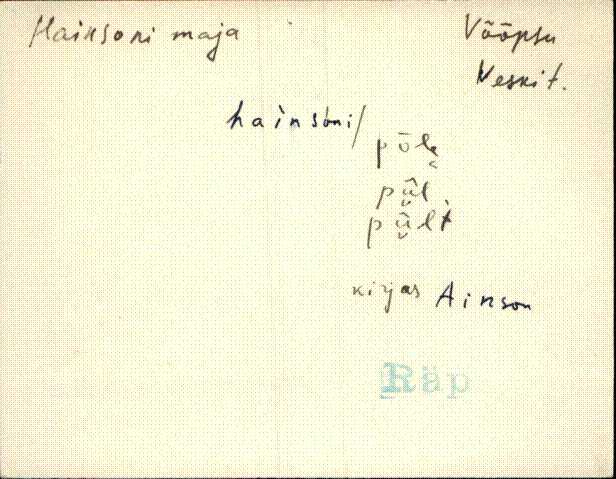 Hainsoni maja
Võõpsu
Veskit.
hainsòni/
põlę
pü̬̂l
pü̬̂lt
kirjas Ainson
Räp